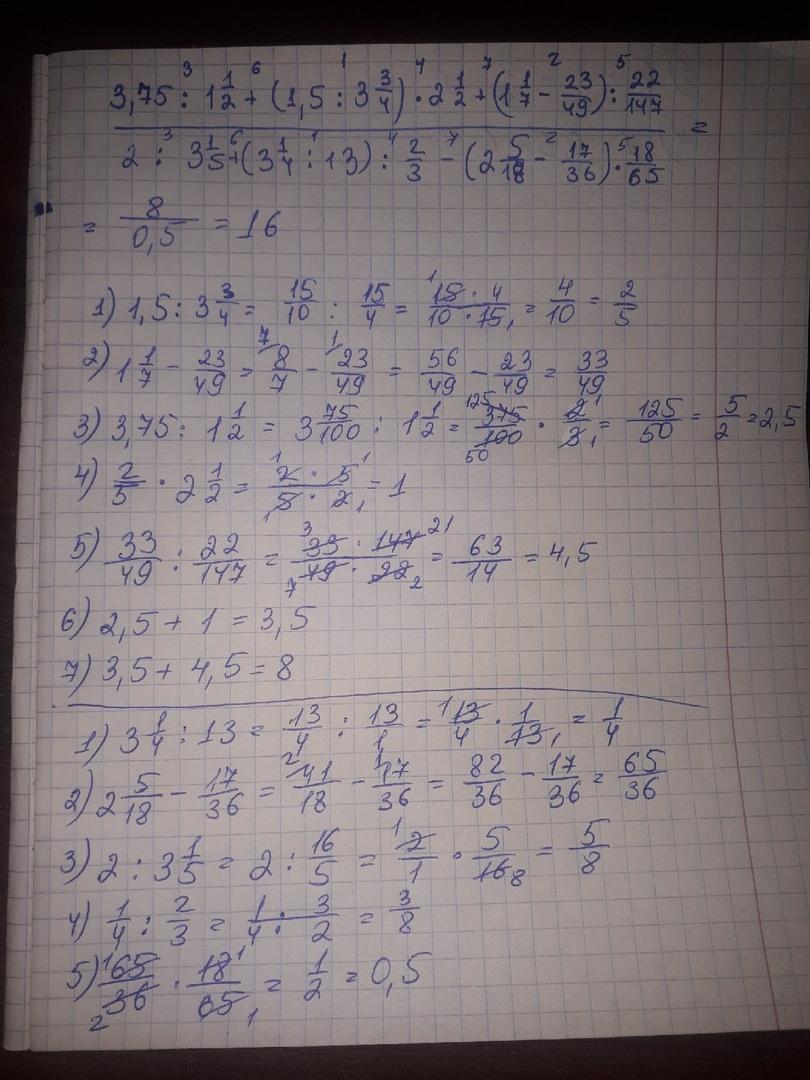 3,75 : 1 1/2 + (1,5 : 3 3/4) · 2 1/2 + (1 1/7 - 23/49) : 22/147
2 : 3 1/5 + (3 1/4 : 13) : 2/3 - (2 5/18 - 17/36) · 18/65 =
= 8/0,5 = 16
1) 1,5 : 3 3/4 = 15/10 : 15/4 = 15 · 4/10 · 15 = 4/10 = 2/5
2) 1 1/7 - 23/49 = 8/7 - 23/49 = 56/49 - 23/49 = 33/49
3) 3,75 : 1 1/2 = 3 75/100 : 1 1/2 = 375/100 · 2/3 = 125/50 = 5/2 = 2,5
4) 2/5 · 2 1/2 = 2 · 5/5 · 2 = 1
5) 33/49 : 22/147 = 33 · 147/49 · 22 = 63/14 = 4,5
6) 2,5 + 1 = 3,5
7) 3,5 + 4,5 = 8
1) 3 1/4 : 13 = 13/4 : 13/1 = 13/4 · 1/13 = 1/4
2) 2 5/18 - 17/36 = 41/18 - 17/36 = 82/36 - 17/36 = 65/36
3) 2 : 3 1/5 = 2 : 16/5 = 2/1 · 5/16 = 5/8
4) 1/4 : 2/3 = 1/4 · 3/2 = 3/8
5) 65/36 · 18/65 = 1/2 = 0,5